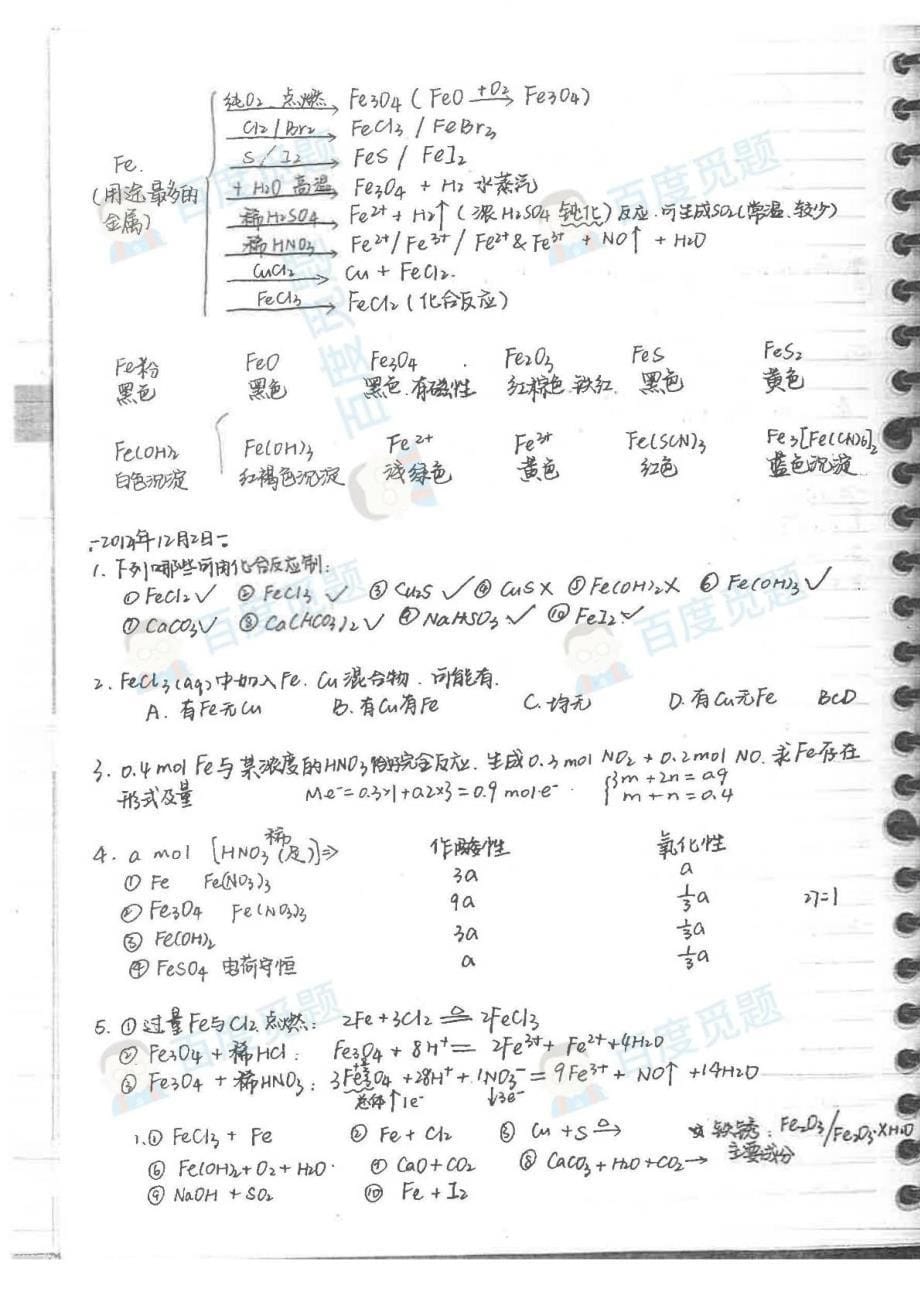 纯O2 点燃 Fe3O4 ( FeO +O2→ Fe3O4)
Cl2 / Br2 FeCl3 / FeBr3
Fe. S / I2 FeS / FeI2
(用途最多的 + H2O 高温 Fe3O4 + H2 水蒸汽
金属) 稀H2SO4 Fe2+ + H2↑ ( 浓 H2SO4 钝化) 反应.可生成SO2(常温.较少)
稀HNO3 Fe2+/Fe3+ / Fe2+ & Fe3+ + NO↑ + H2O
CuCl2 Cu + FeCl2.
FeCl3 FeCl2 (化合反应)
Fe粉 FeO Fe3O4 Fe2O3 FeS FeS2
黑色 黑色 黑色.有磁性 红棕色.铁红. 黑色 黄色
Fe(OH)2 Fe(OH)3 Fe2+ Fe3+ Fe(SCN)3 Fe3[Fe(CN)6]2
白色沉淀 红褐色沉淀 浅绿色 黄色 红色 蓝色沉淀
12月2日
1. 下列哪些可用化合反应制:
① FeCl2 ✓ ② FeCl3 ✓ ③ Cu2S ✓ ④ CuS × ⑤ Fe(OH)2 × ⑥ Fe(OH)3 ✓
⑦ CaCO3 ✓ ⑧ Ca(HCO3)2 ✓ ⑨ NaHSO3 ✓ ⑩ FeI2 ✓
2. FeCl3(aq)中加入Fe. Cu混合物. 可能有.
A. 有Fe无Cu B. 有Cu有Fe C. 均无 D. 有Cu无Fe BCD
3. 0.4 mol Fe与某浓度的HNO3恰好完全反应. 生成0.3 mol NO2 + 0.2 mol NO. 求Fe存在
形式及量 Me-=0.3×1+0.2×3=0.9 mol e- . {3m+2n=0.9
m+n=0.4
4. a mol [HNO3 稀(足)]⇒ 作酸性 氧化性
① Fe Fe(NO3)3 3a a
② Fe3O4 Fe(NO3)3 9a 1/3a
③ Fe(OH)2 3a 1/3a
④ FeSO4 电荷守恒 a 1/3a
5. ①过量Fe与Cl2点燃: 2Fe+3Cl2 =△= 2FeCl3
② Fe3O4 + 稀HCl: Fe3O4 + 8H+ = 2Fe3+ + Fe2+ + 4H2O
③ Fe3O4 + 稀HNO3: 3Fe3O4 + 28H+ + 1NO3- = 9Fe3+ + NO↑ + 14H2O
总体↑1e- ↓3e-
1.① FeCl3 + Fe ② Fe + Cl2 ③ Cu + S △→ ☆ 铁锈: Fe2O3/Fe2O3·XH2O
主要成分
⑥ Fe(OH)2+O2+H2O. ⑦ CaO+CO2 ⑧ CaCO3+H2O+CO2→
⑨ NaOH + SO2 ⑩ Fe + I2
百度觅题
百度觅题
百度觅题
百度觅题
百度觅题
百度觅题